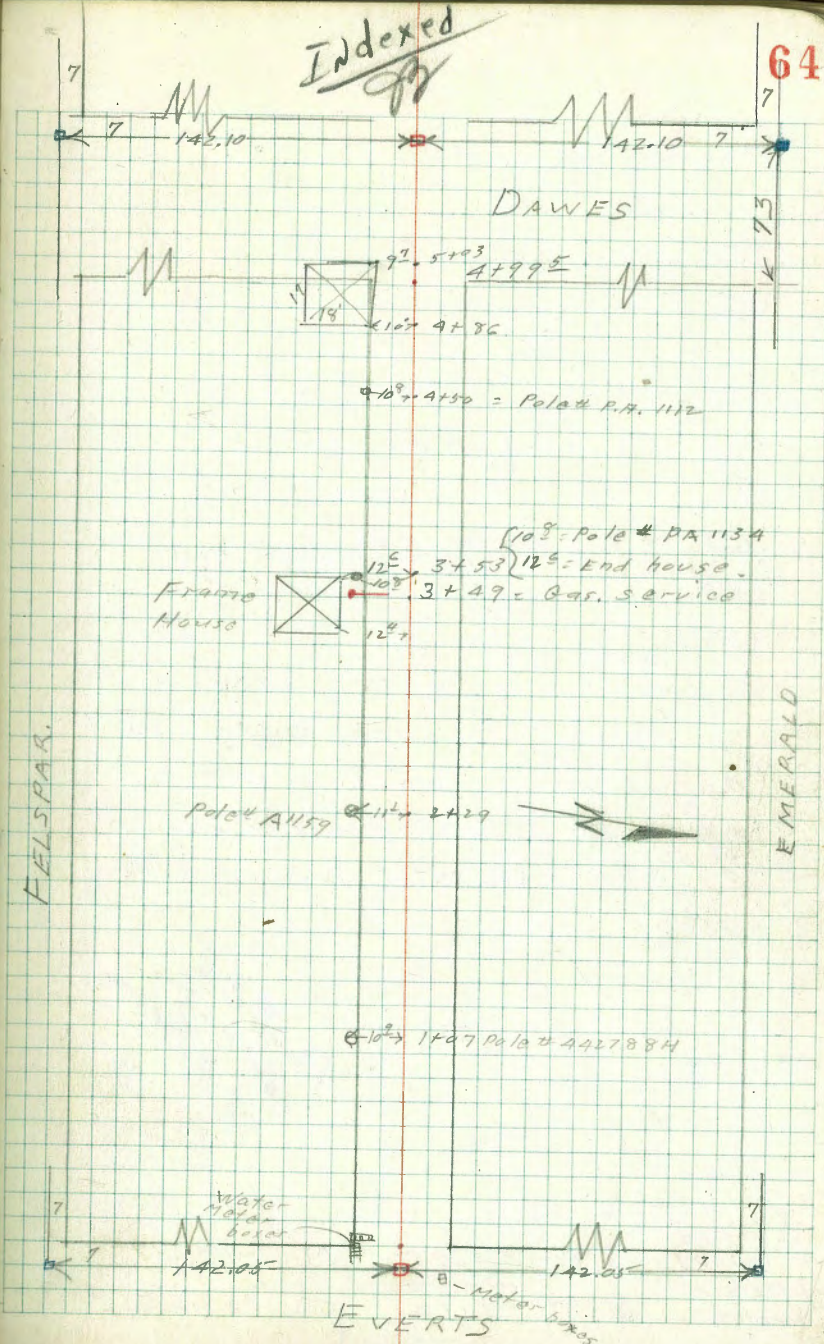 Indexed
64
7
7
7
142.10
142.10
7
7
DAWES
73
9⁷ 5+03
4+99⁵
17
18'
10⁰ 4+86
10⁸ 4+50 = Pole# P.A. 1112
10⁸ = Pole # PA 1134
12⁶ 3+53 12⁶ = End house.
10⁸ 3+49 = Gas. service
Frame
House
12⁴
FELSPAR.
EMERALD
Pole# A1159 11² 2+29
10⁹ 1+07 Pole # 442788H
Water
Meter
boxes
7
7
7
7
142.05
142.05
Meter boxes
EVERTS